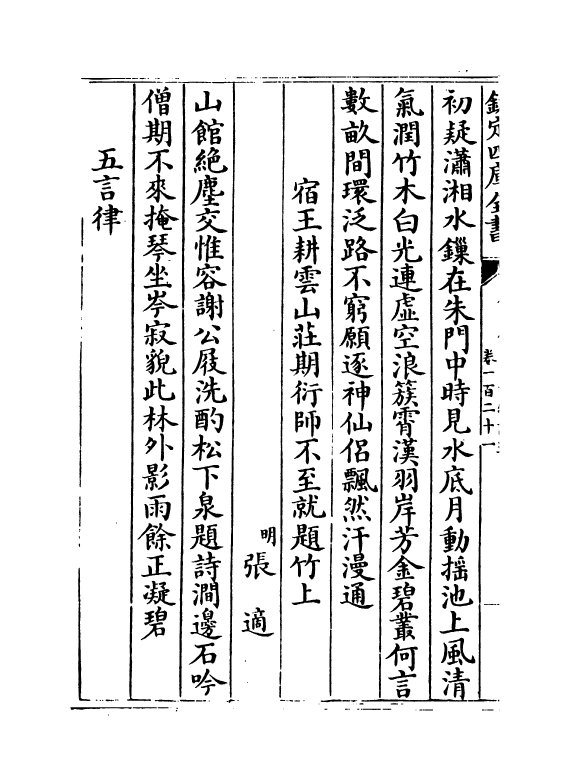 欽定四庫全書
卷一百二十一
初疑瀟湘水鏁在朱門中時見水底月動揺池上風清
氣潤竹木白光連虛空浪簇霄漢羽岸芳金碧叢何言
數畝間環泛路不窮願逐神仙侶飄然汗漫通
宿王耕雲山莊期衍師不至就題竹上
明張適
山館絶塵交惟容謝公屐洗酌松下泉題詩澗邊石吟
僧期不來掩琴坐岑寂貌此林外影雨餘正凝碧
五言律